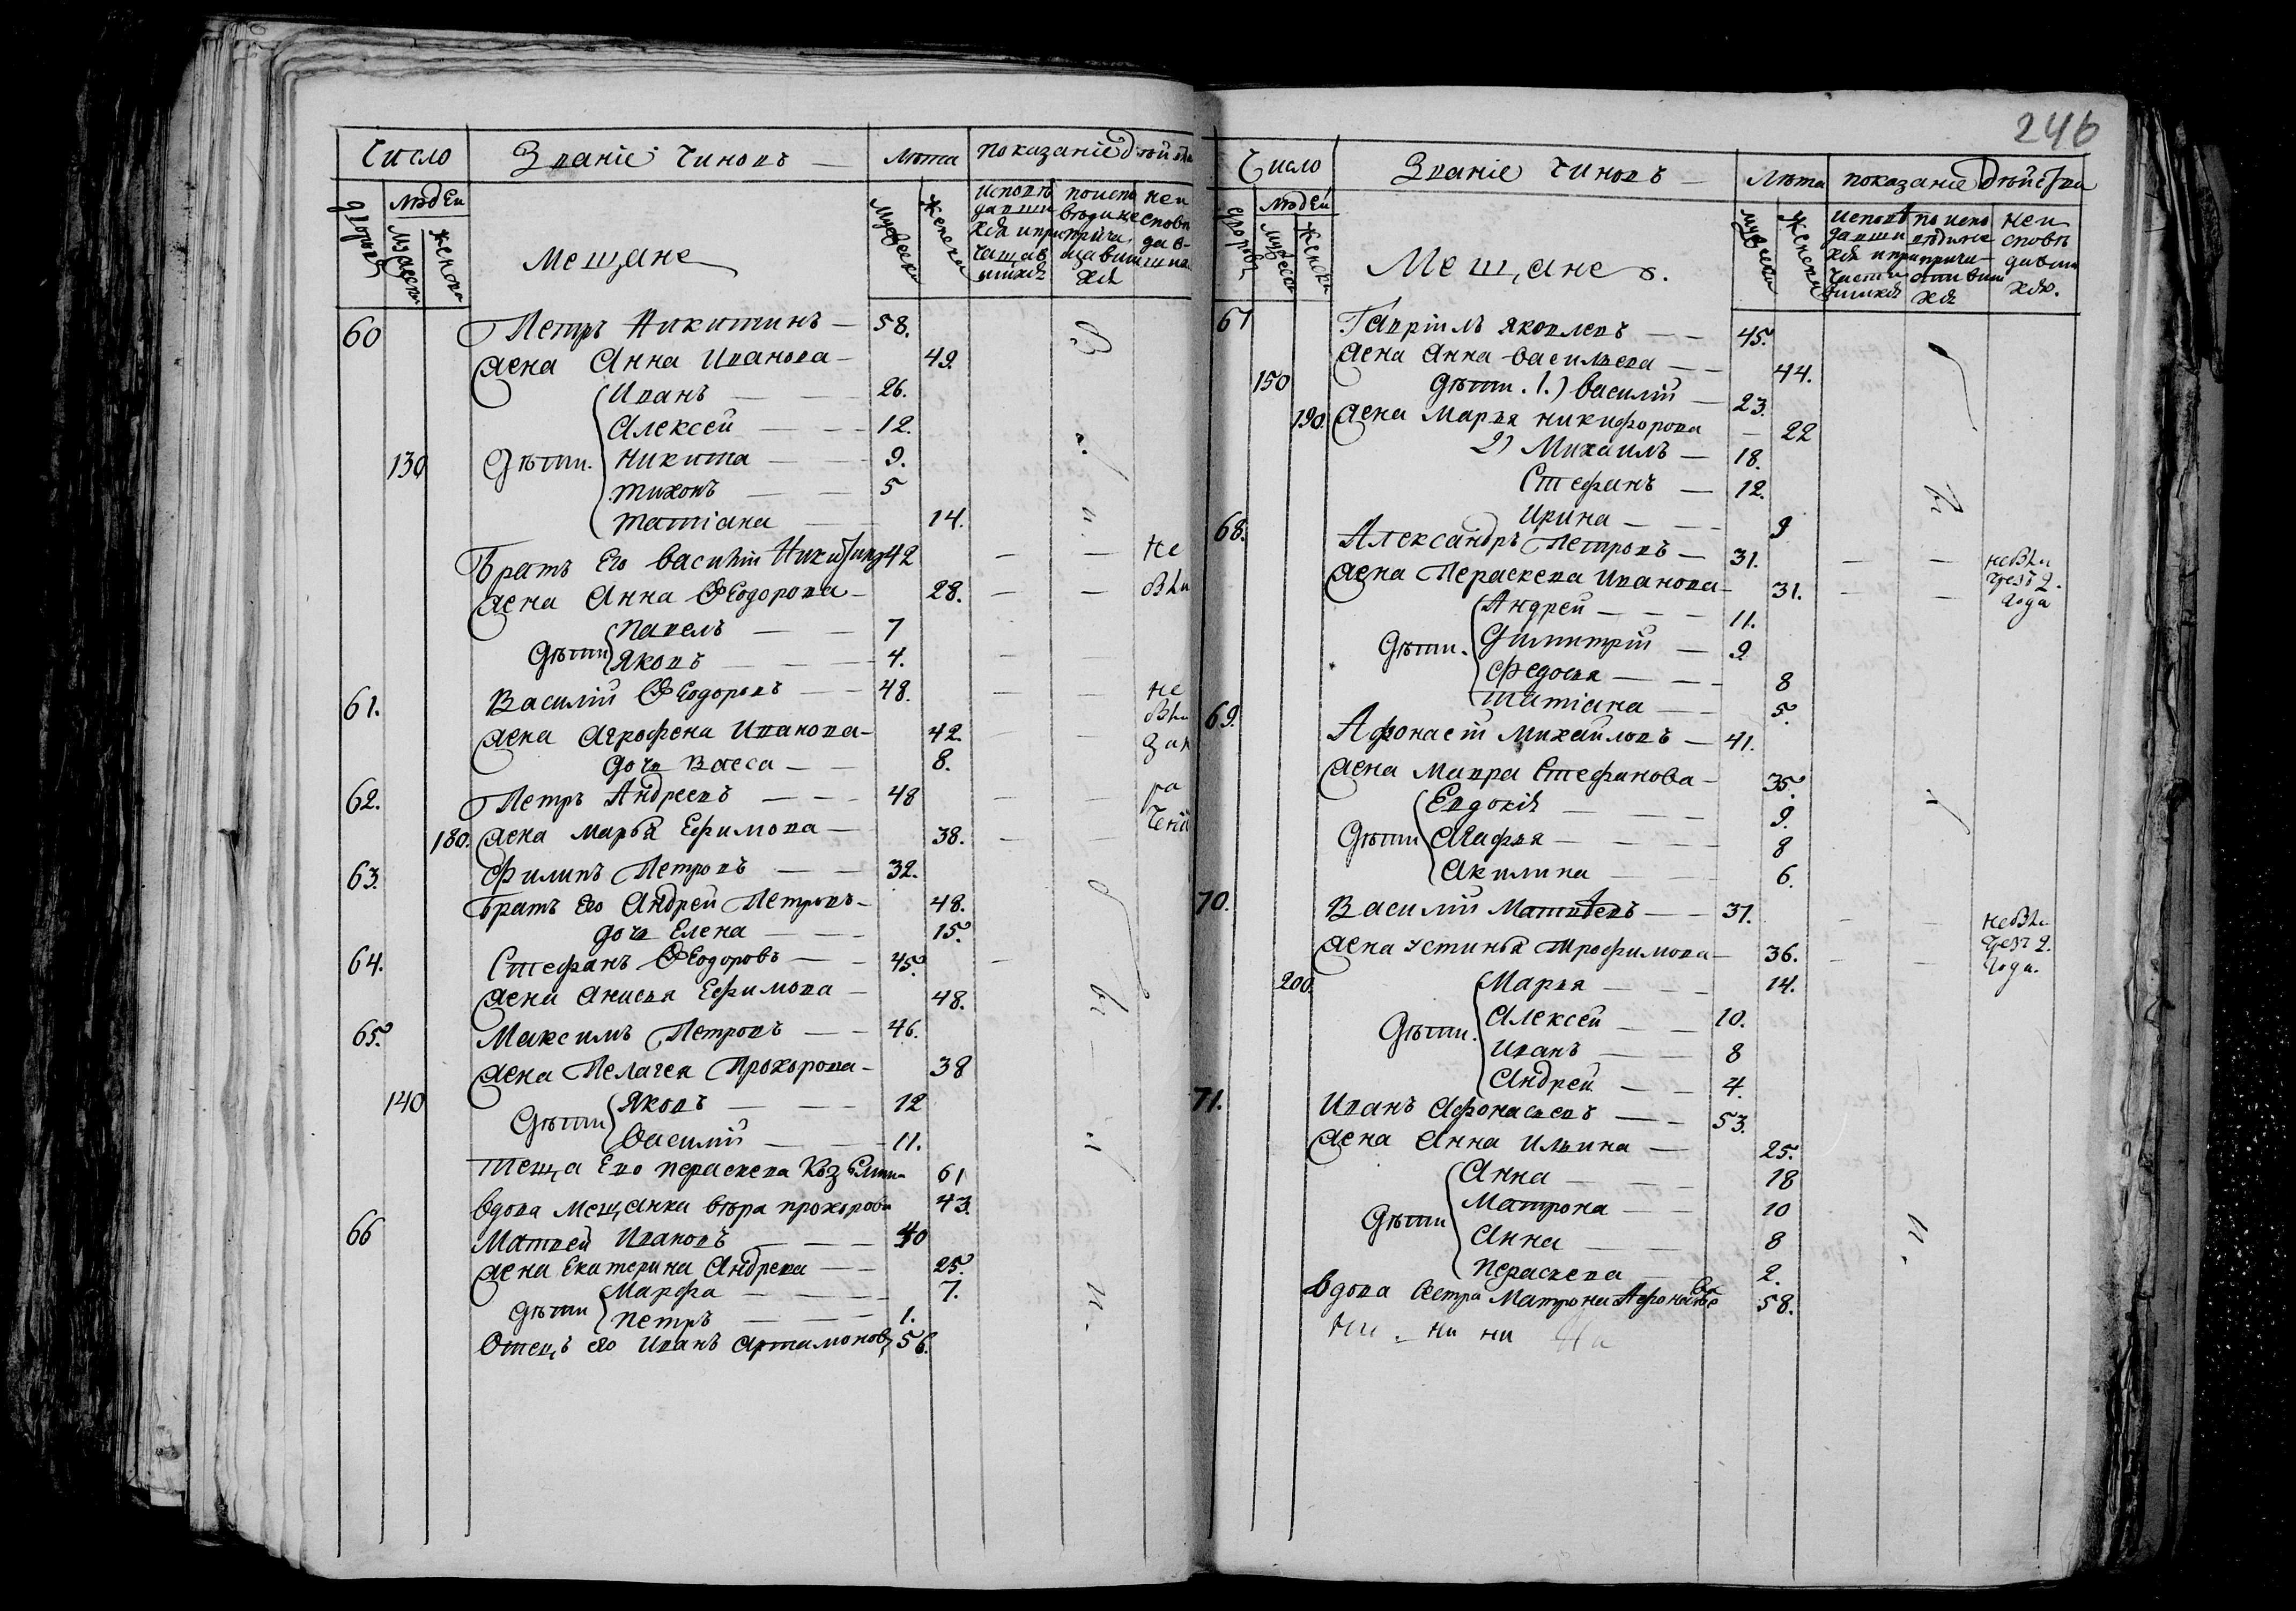 Число Званіе Чиновъ Лѣта показаніе дѣйств
дворовъ людеи
мужеска женска
Мещане
мужеска женска
исповѣдавшихся и причащавшихся
по исповѣди не причащавшихся
неисповѣдавшихся
60 Петръ Никитинъ — 58.
жена Анна Иванова — 49.
Иванъ — — 26.
Алексей — — 12.
130 дѣти. Никита — — 9.
тихонъ — — 5
татіана — 14.
Братъ Его василіи Никитинъ 42 — — Не
жена Анна Ѳеодорова — 28. — — бы
дѣти Павелъ — — 7
Яковъ — — 4.
61. Василій Ѳеодоровъ — — 48. — — не
жена Агрофена Иванова — 42. — — бы
дочь Васса — — 8. за
62. Петръ Андреевъ — — 48 — — ра
180. жена марья Ефимова — 38. — — чені
63. Филипъ Петровъ — — 32.
братъ его Андрей Петровъ — 48.
дочь Елена — — 15.
64. Стефанъ Ѳеодоровъ — — 45.
жена Анисья Ефимова — 48.
65. Максимъ Петровъ — — 46.
жена Пелагея Прохорова — 38
140 дѣти Яковъ — — 12
Василій — — 11.
теща Его пераскева 61
вдова мещанка вѣра прохорова 43.
66 Матвей Ивановъ — — 40
жена Екатерина Андреева — — 25.
дѣти Марфа — — 7.
петръ — — 1.
Отецъ его Иванъ Артамоновъ 56.
246
Число Званіе Чиновъ — Лѣта показаніе дѣйства
дворовъ людей
мужеска женска
Мещане.
мужеска женска
исповѣдавшихся и причастившихся
по исповѣди не причастившихся
неисповѣдавшихся.
67 Гавріилъ яковлевъ — — 45.
жена Анна васильева — — 44.
150 дѣти. 1.) василій — 23.
190. жена Марья никифорова — 22
2) Михаилъ — 18.
Стефанъ — 12.
Ирина — — 9
68. Александръ Петровъ — 31. — — небы
жена Пераскева Иванова — 31. — — чрез 2.
Андрей — — 11. года
дѣти. Димитрій — 9
Федосья — — 8
татіана — — 5.
69. Афонасій Михайловъ — 41.
жена Мавра Стефанова — 35.
Евдокія — — 9.
дѣти Агафья — — 8
Акилина — — 6.
70. Василій Матвѣевъ — — 37. — — небы
жена Устинья Трофимова — 36. — — чрез 2.
200. Марья — — 14. года.
дѣти. Алексей — — 10.
Иванъ — — 8
Андрей — — 4.
71. Иванъ Афонасьевъ — — 53.
жена Анна Ильина — 25.
Анна — — 18
Матрона — — 10
дѣти Анна — — 8
Пераскева — 2.
вдова сестра Матрона Афонасьева 58.
ни ни ни